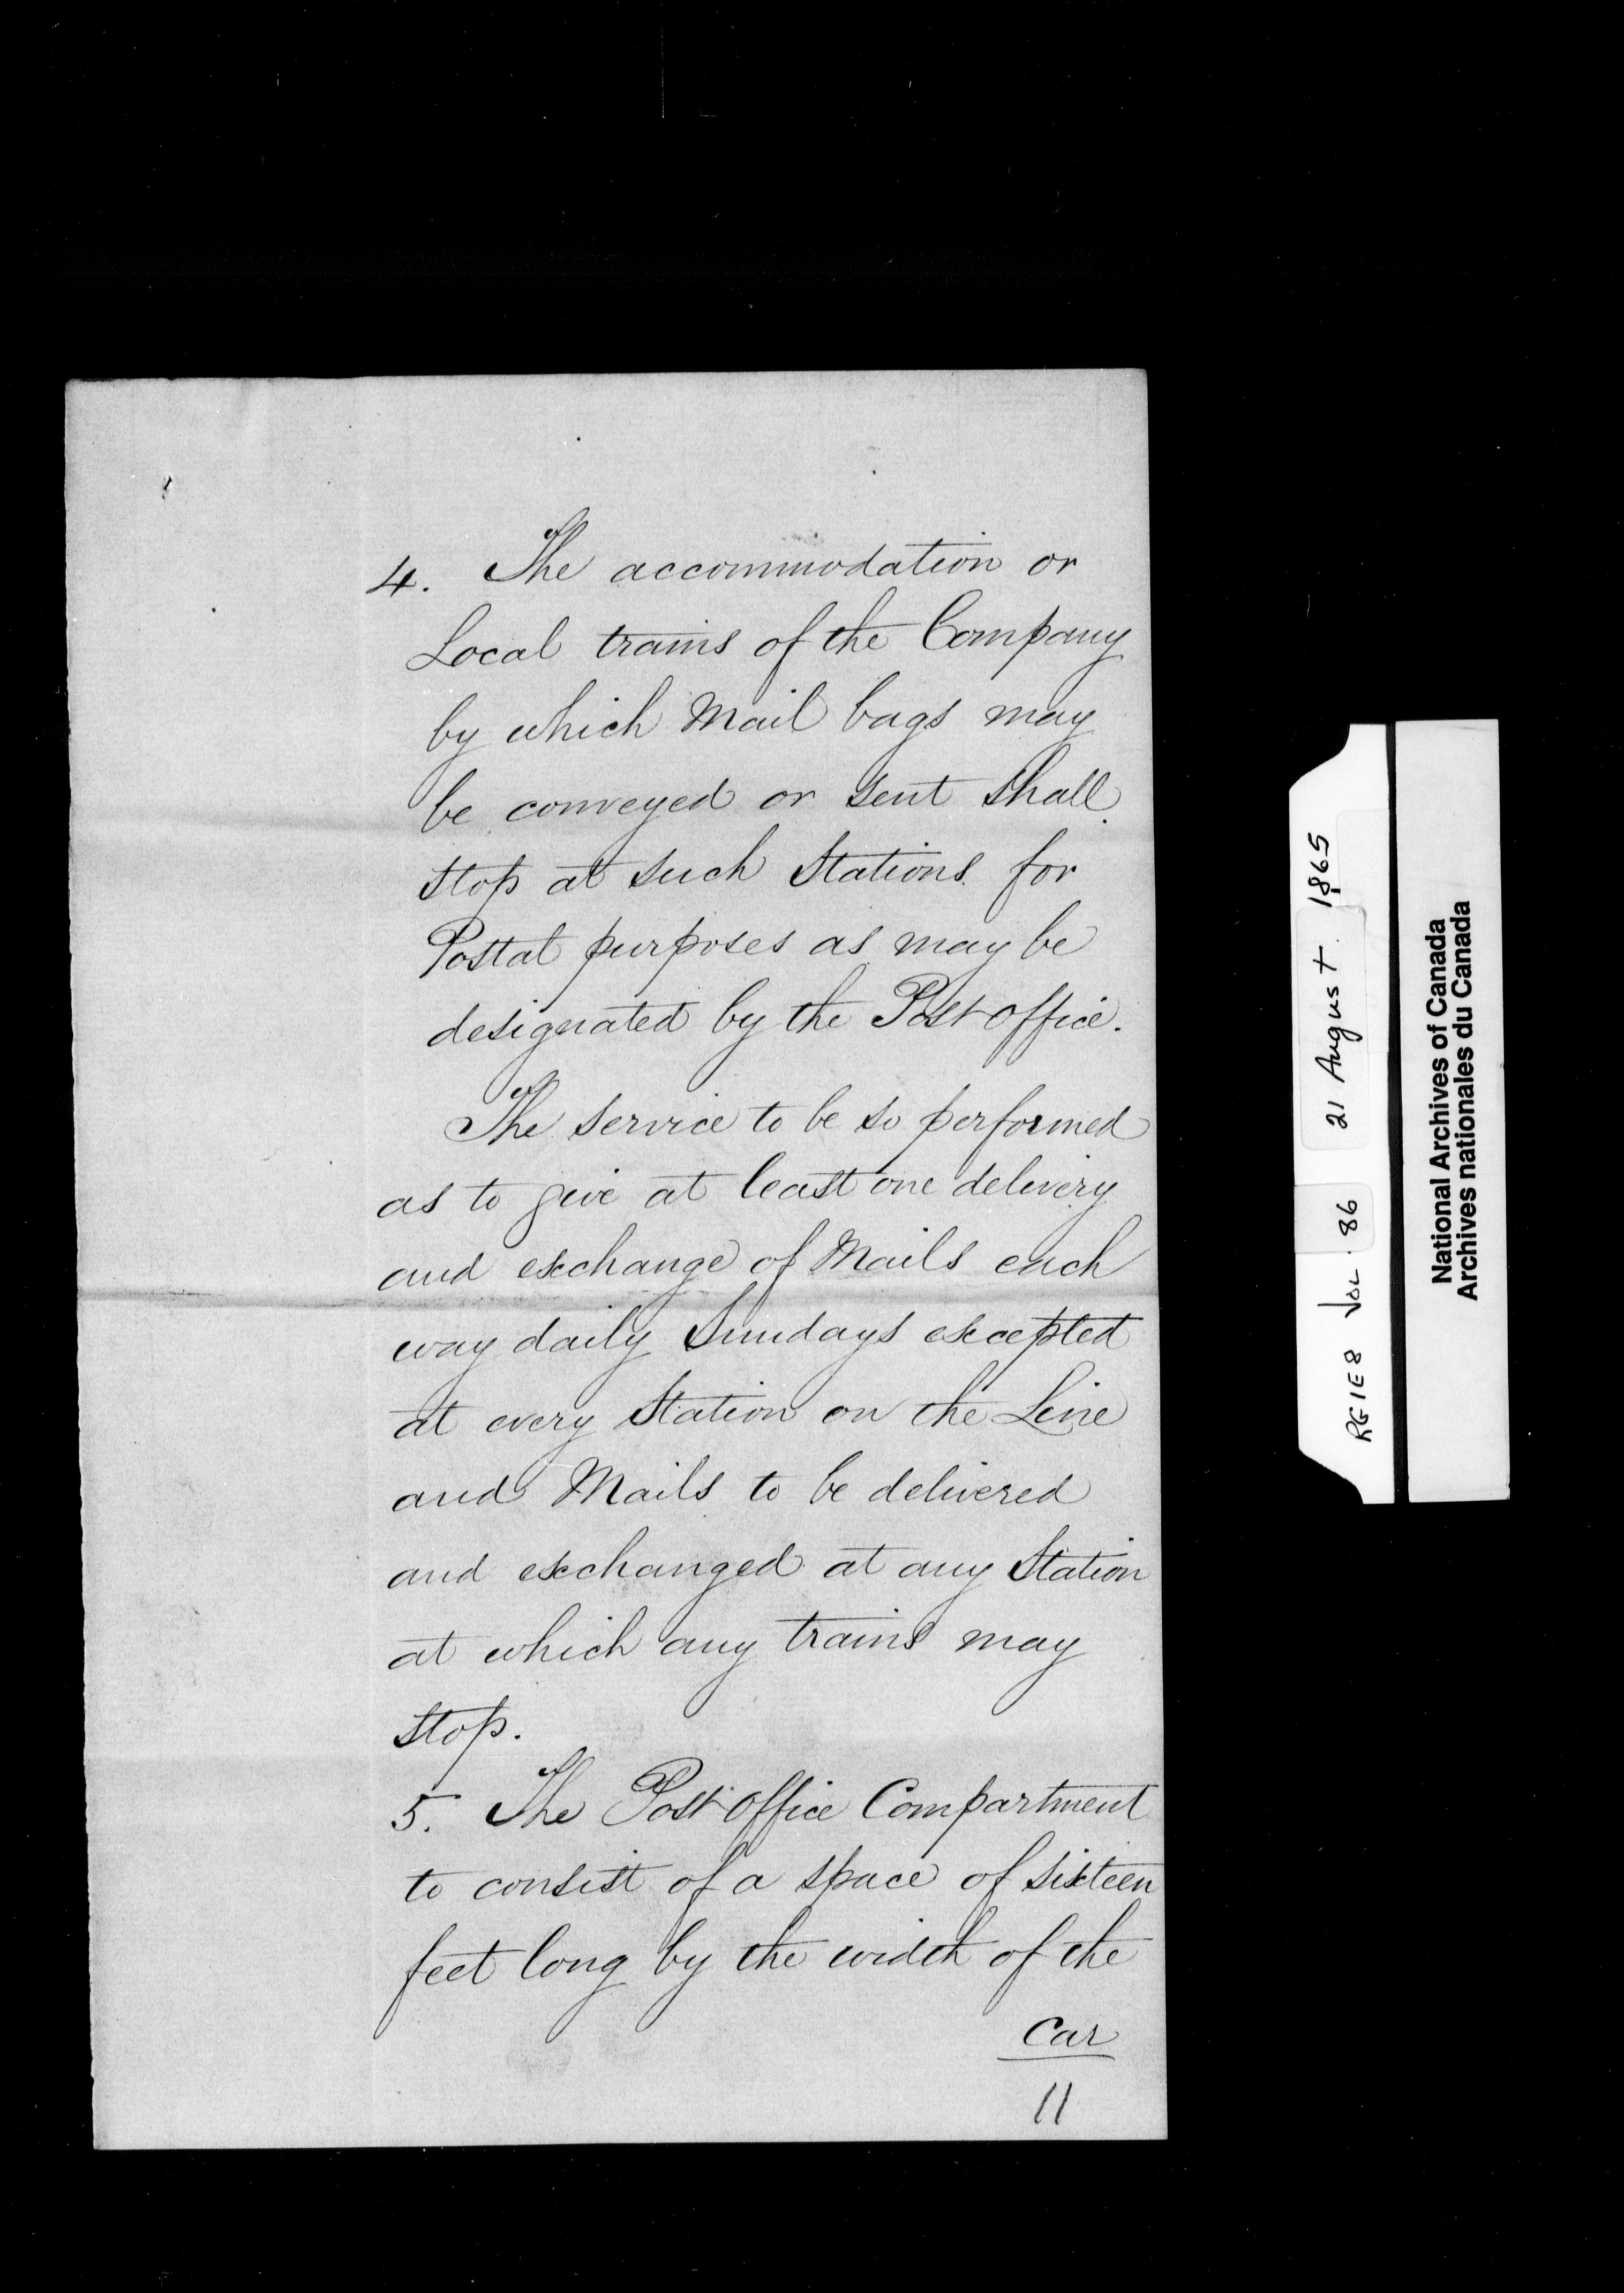 4. The accommodation or
Local trains of the Company
by which Mail bags may
be conveyed or sent shall
stop at such Stations for
Postal purposes as may be
designated by the Post office.
The service to be so performed
as to give at least one delivery
and exchange of Mails each
way daily Sundays excepted
at every Station on the Line
and Mails to be delivered
and exchanged at any Station
at which any trains may
stop.
5. The Post office Compartment
to consist of a space of sixteen
feet long by the width of the
Car
11
RG1E8 Vol. 86 21 August 1865
National Archives of Canada
Archives nationales du Canada